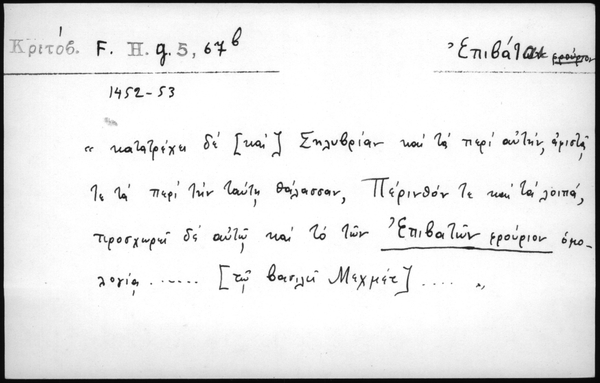 Κριτόβ. F. H. g. 5, 67ᵇ Ἐπιβάται φρούριον
1452-53
« κατατρέχει δέ [καί] Σηλυβρίαν καί τά περί αὐτήν,
τε τά περί τήν ταύτῃ θάλασσαν, Πέρινθόν τε καί τά λοιπά,
προσχωρεῖ δέ αὐτῷ καί τό τῶν Ἐπιβατῶν φρούριον ὁμο-
λογίᾳ ...... [τῷ βασιλεῖ Μεχμέτ] .... »